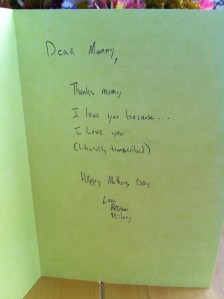 Dear Mommy,
Thanks momy
I love you because...
I Love you
(literally transcribed)
Happy Mothers Day
Love